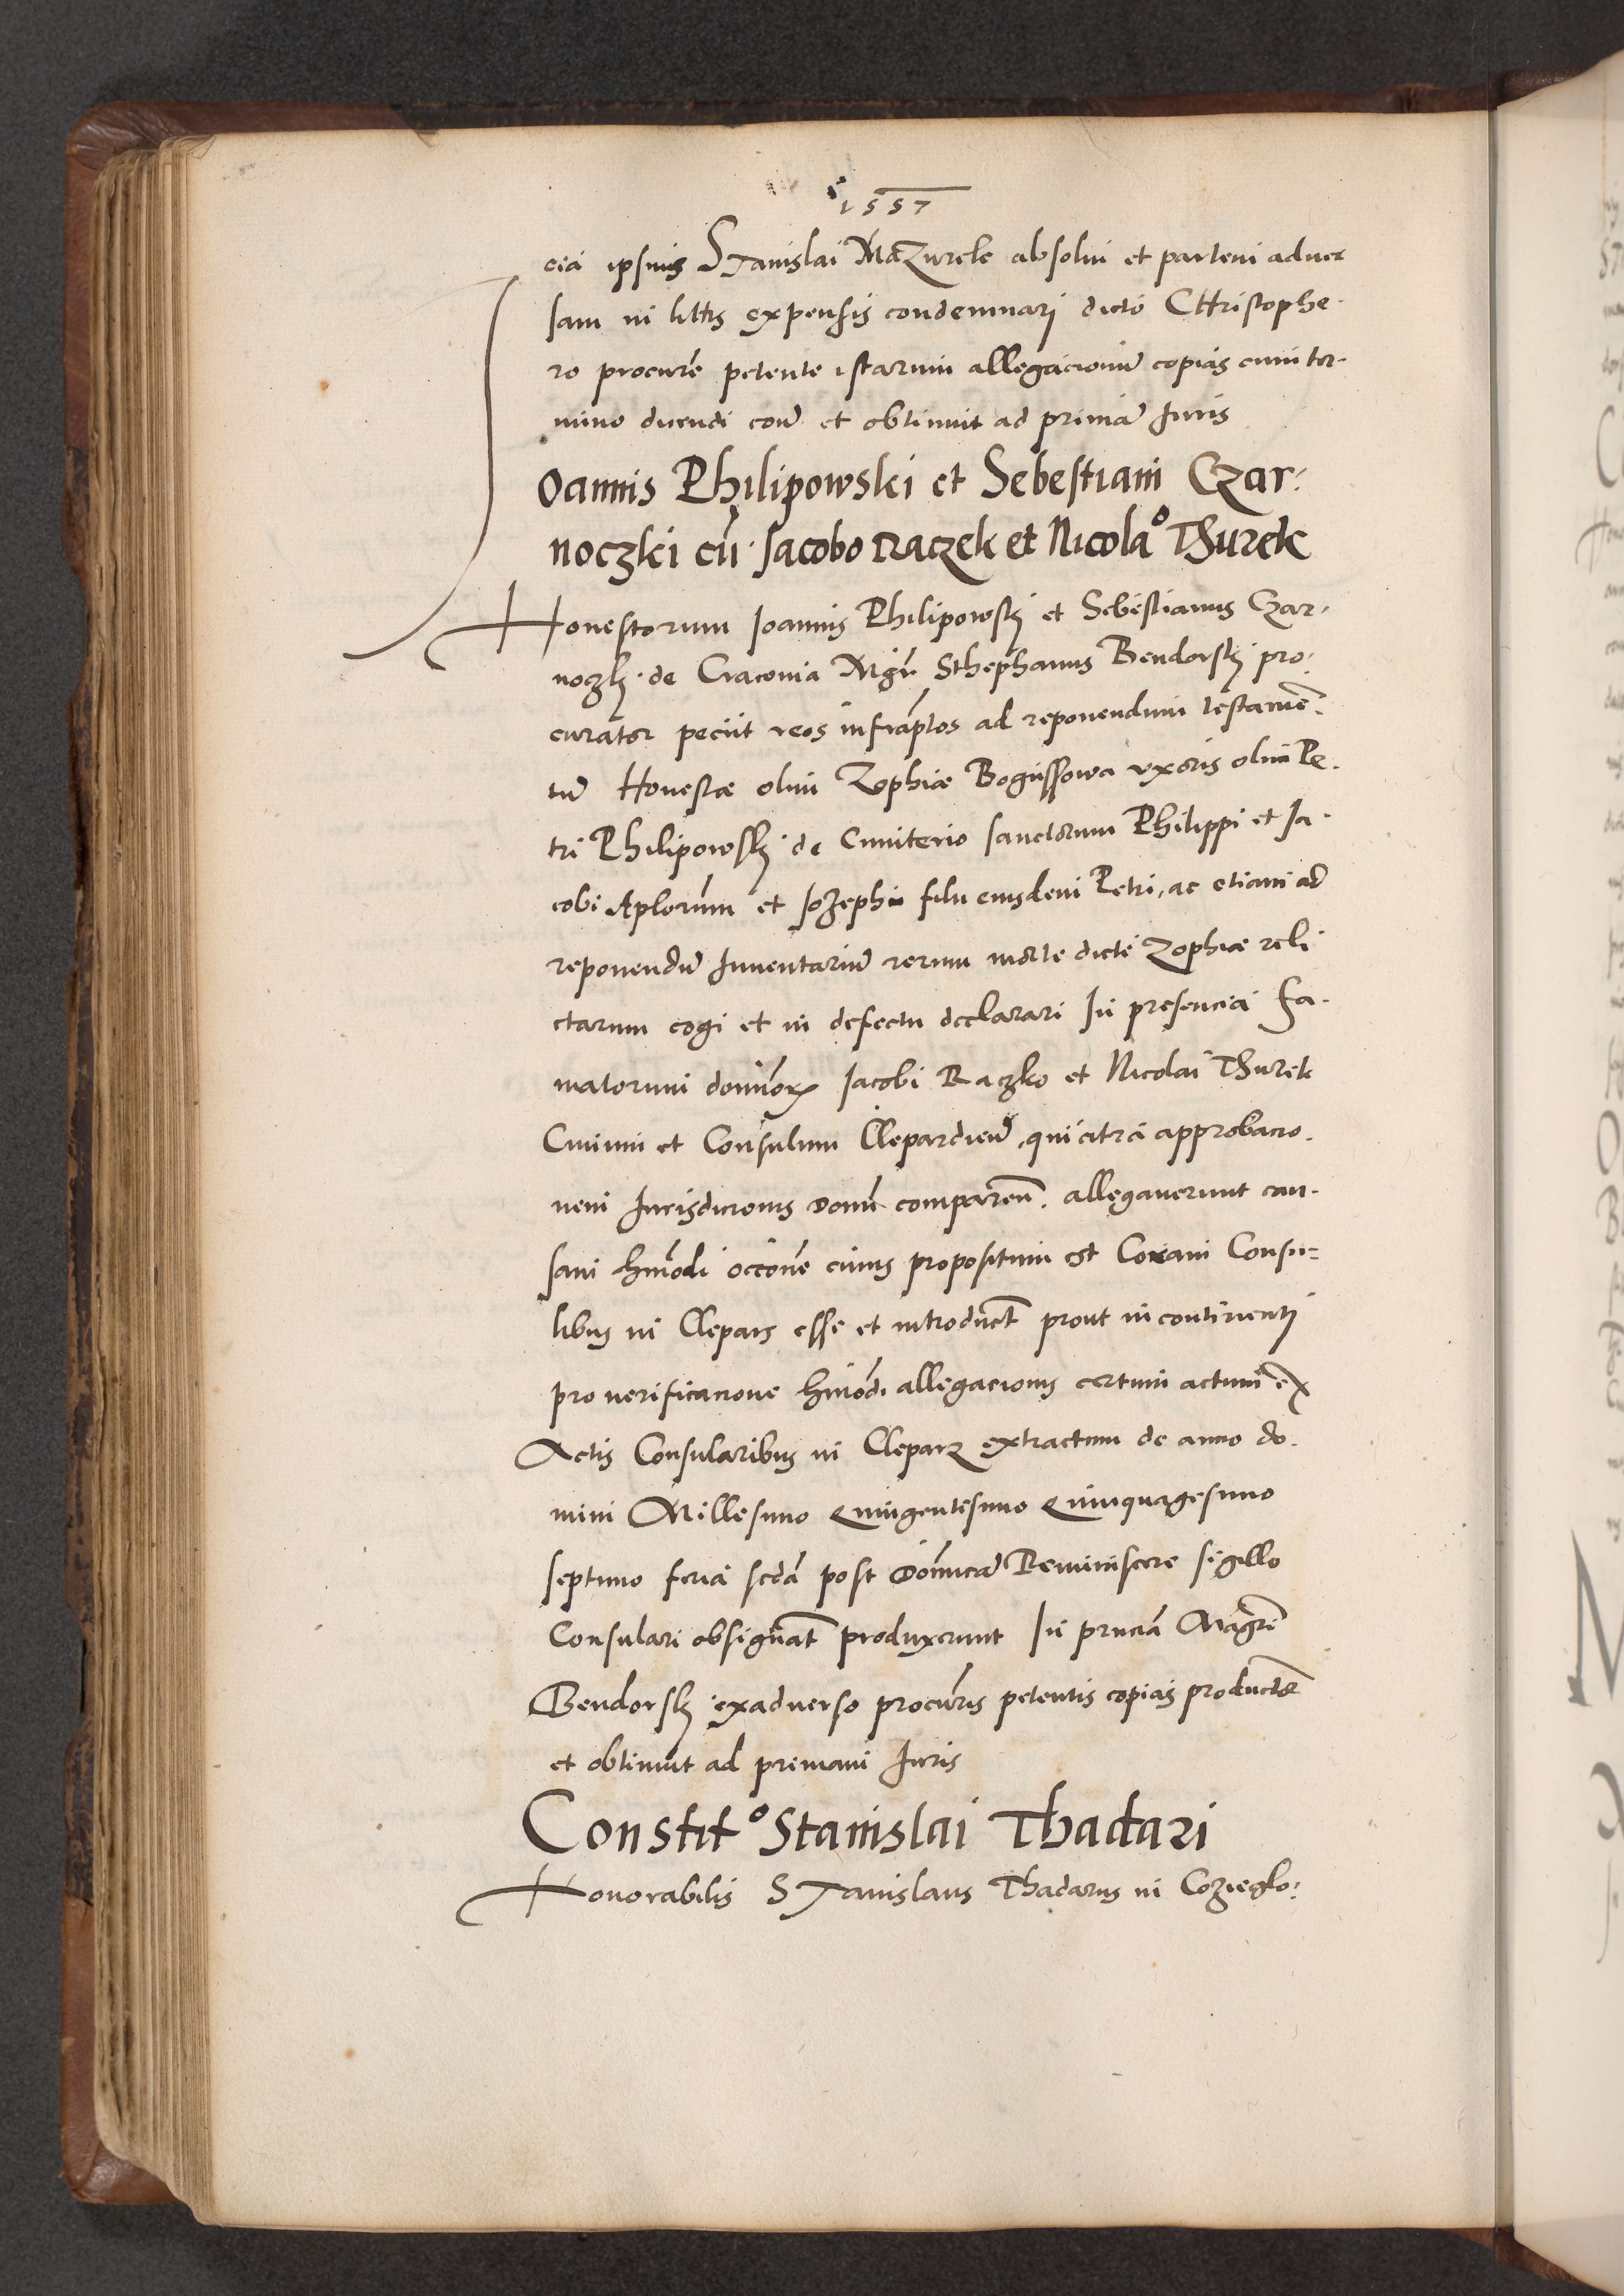 1557
cia ipsius Stanislai Mazurek absolui et partem aduer
sam in littis expensis condemnari dicto Christophe-
ro procure petente istarum allegacionum copias cum ter-
mino dicendi contra et obtinuit ad primam Iuris
Joannis Philipowski et Sebestiani Czar-
noczki cū Jacobo Raczek et Nicolao Thurek
Honestorum Joannis Philipowsky et Sebestianus Czar-
noczky de Cracouia Mgr̄ Sthephanus Bendorsky pro-
curator peciit reos infraptos ad reponendum testamē-
tū Honestæ olim Zophiæ Bogussowa vxoris olim Pe-
tri Philipowsky de Cimiterio sanctorum Philippi et Ja-
cobi Aplorum et Jozephi filii eiusdem Petri, ac etiam ad
reponendū Inuentariū rerum morte dictę Zophiæ reli
ctarum cogi et in defectu declarari In presencia Fa-
matorum dominorꝝ Jacobi Raczko et Nicolai Thurek
Ciuium et Consulum Clepardieñ, qui citra approbacio-
nem Jurisdicionis Domī compareñ. allegauerunt cau-
sam hmōdi occōne cuius propositum est Coram Consu-
libus in Clepars esse et introductā prout in continenti
pro verificacione hmōdi allegacionis certum actum ex
Actis Consularibus in Cleparz extractum de anno do-
mini Millesimo Quingentesimo Quinquagesimo
septimo feria scdā post Domīcā Reminiscere sigillo
Consulari obsignat̄ produxerunt In pn̄ciā Magrī
Bendorsky exaduerso procūris petentis copias productorū
et obtinuit ad primam Iuris
Constito Stanislai Thadari
Honorabilis Stanislaus Thadarus in Cozieglo-